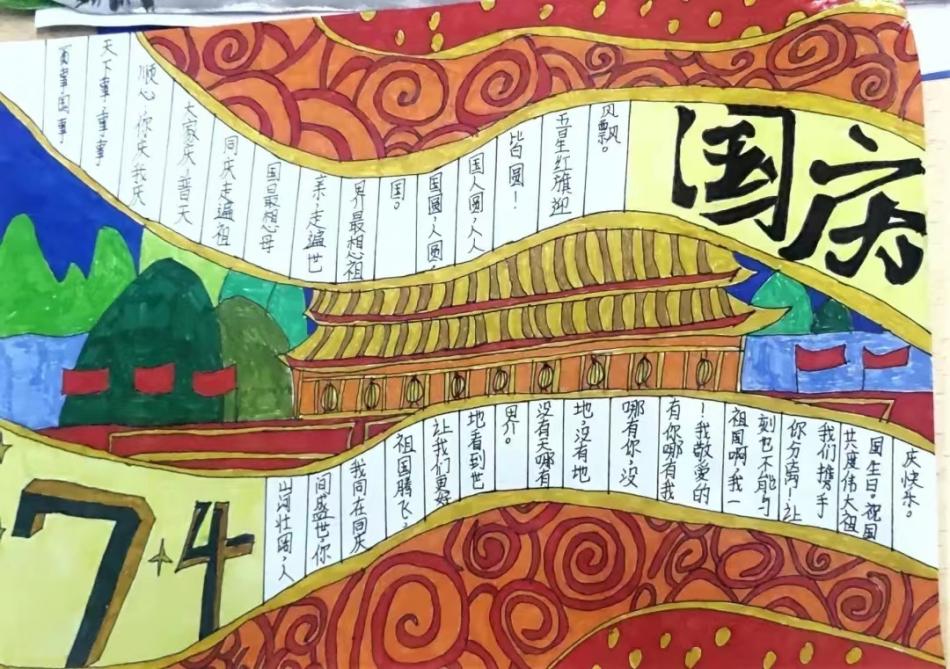 国庆
事国事
天下事,事事
顺心,你庆我庆
大家庆,普天
同庆走遍祖
国最想母
亲,走遍世
界最想祖
国。
国圆,人圆,
国人圆,人人
皆圆!
五星红旗迎
风飘。
74
山河壮阔,人
间盛世,你
我同在同庆
祖国腾飞,
让我们更好
地看到世
界。
没有天哪有
地,没有地
哪有你,没
有你哪有我
!我敬爱的
祖国啊我一
刻也不能与
你分离!让
我们携手
共度伟大祖
国生日。祝国
庆快乐。